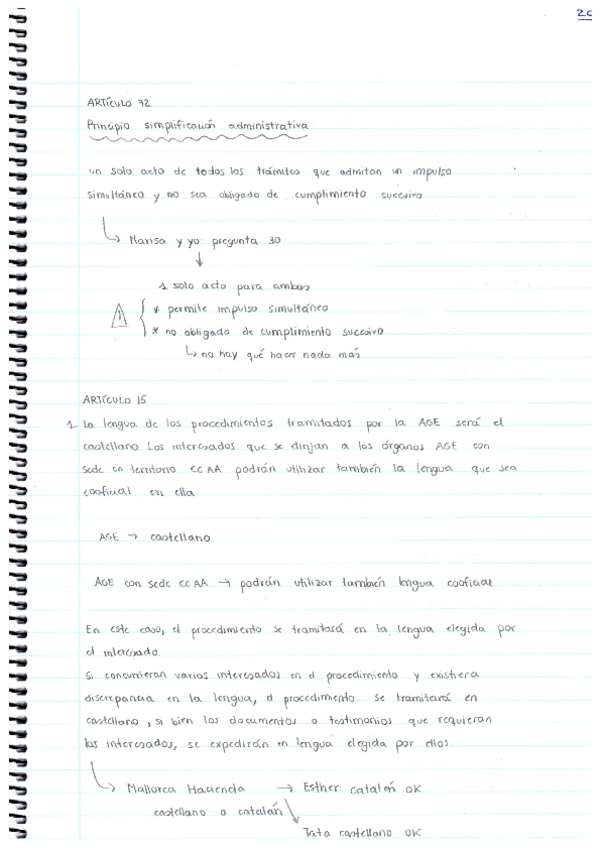 20
ARTÍCULO 72
Principio simplificación administrativa
un solo acto de todos los trámites que admitan un impulso
simultáneo y no sea obligado de cumplimiento sucesivo
↳ Marisa y yo: pregunta 30
↓
1 solo acto para ambos
* permite impulso simultáneo
* no obligado de cumplimiento sucesivo
↳ no hay qué hacer nada más
ARTÍCULO 15
1 La lengua de los procedimientos tramitados por la AGE será el
castellano. Los interesados que se dirijan a los órganos AGE con
sede en territorio CCAA podrán utilizar también la lengua que sea
cooficial en ella
AGE → castellano
AGE con sede CCAA → podrán utilizar también lengua cooficial
En este caso, el procedimiento se tramitará en la lengua elegida por
el interesado.
Si concurrieran varios interesados en el procedimiento y existiera
discrepancia en la lengua, el procedimiento se tramitará en
castellano, si bien los documentos o testimonios que requieran
los interesados, se expedirán en lengua elegida por ellos
↳ Mallorca Hacienda → Esther: catalán OK
castellano o catalán
Tata castellano OK